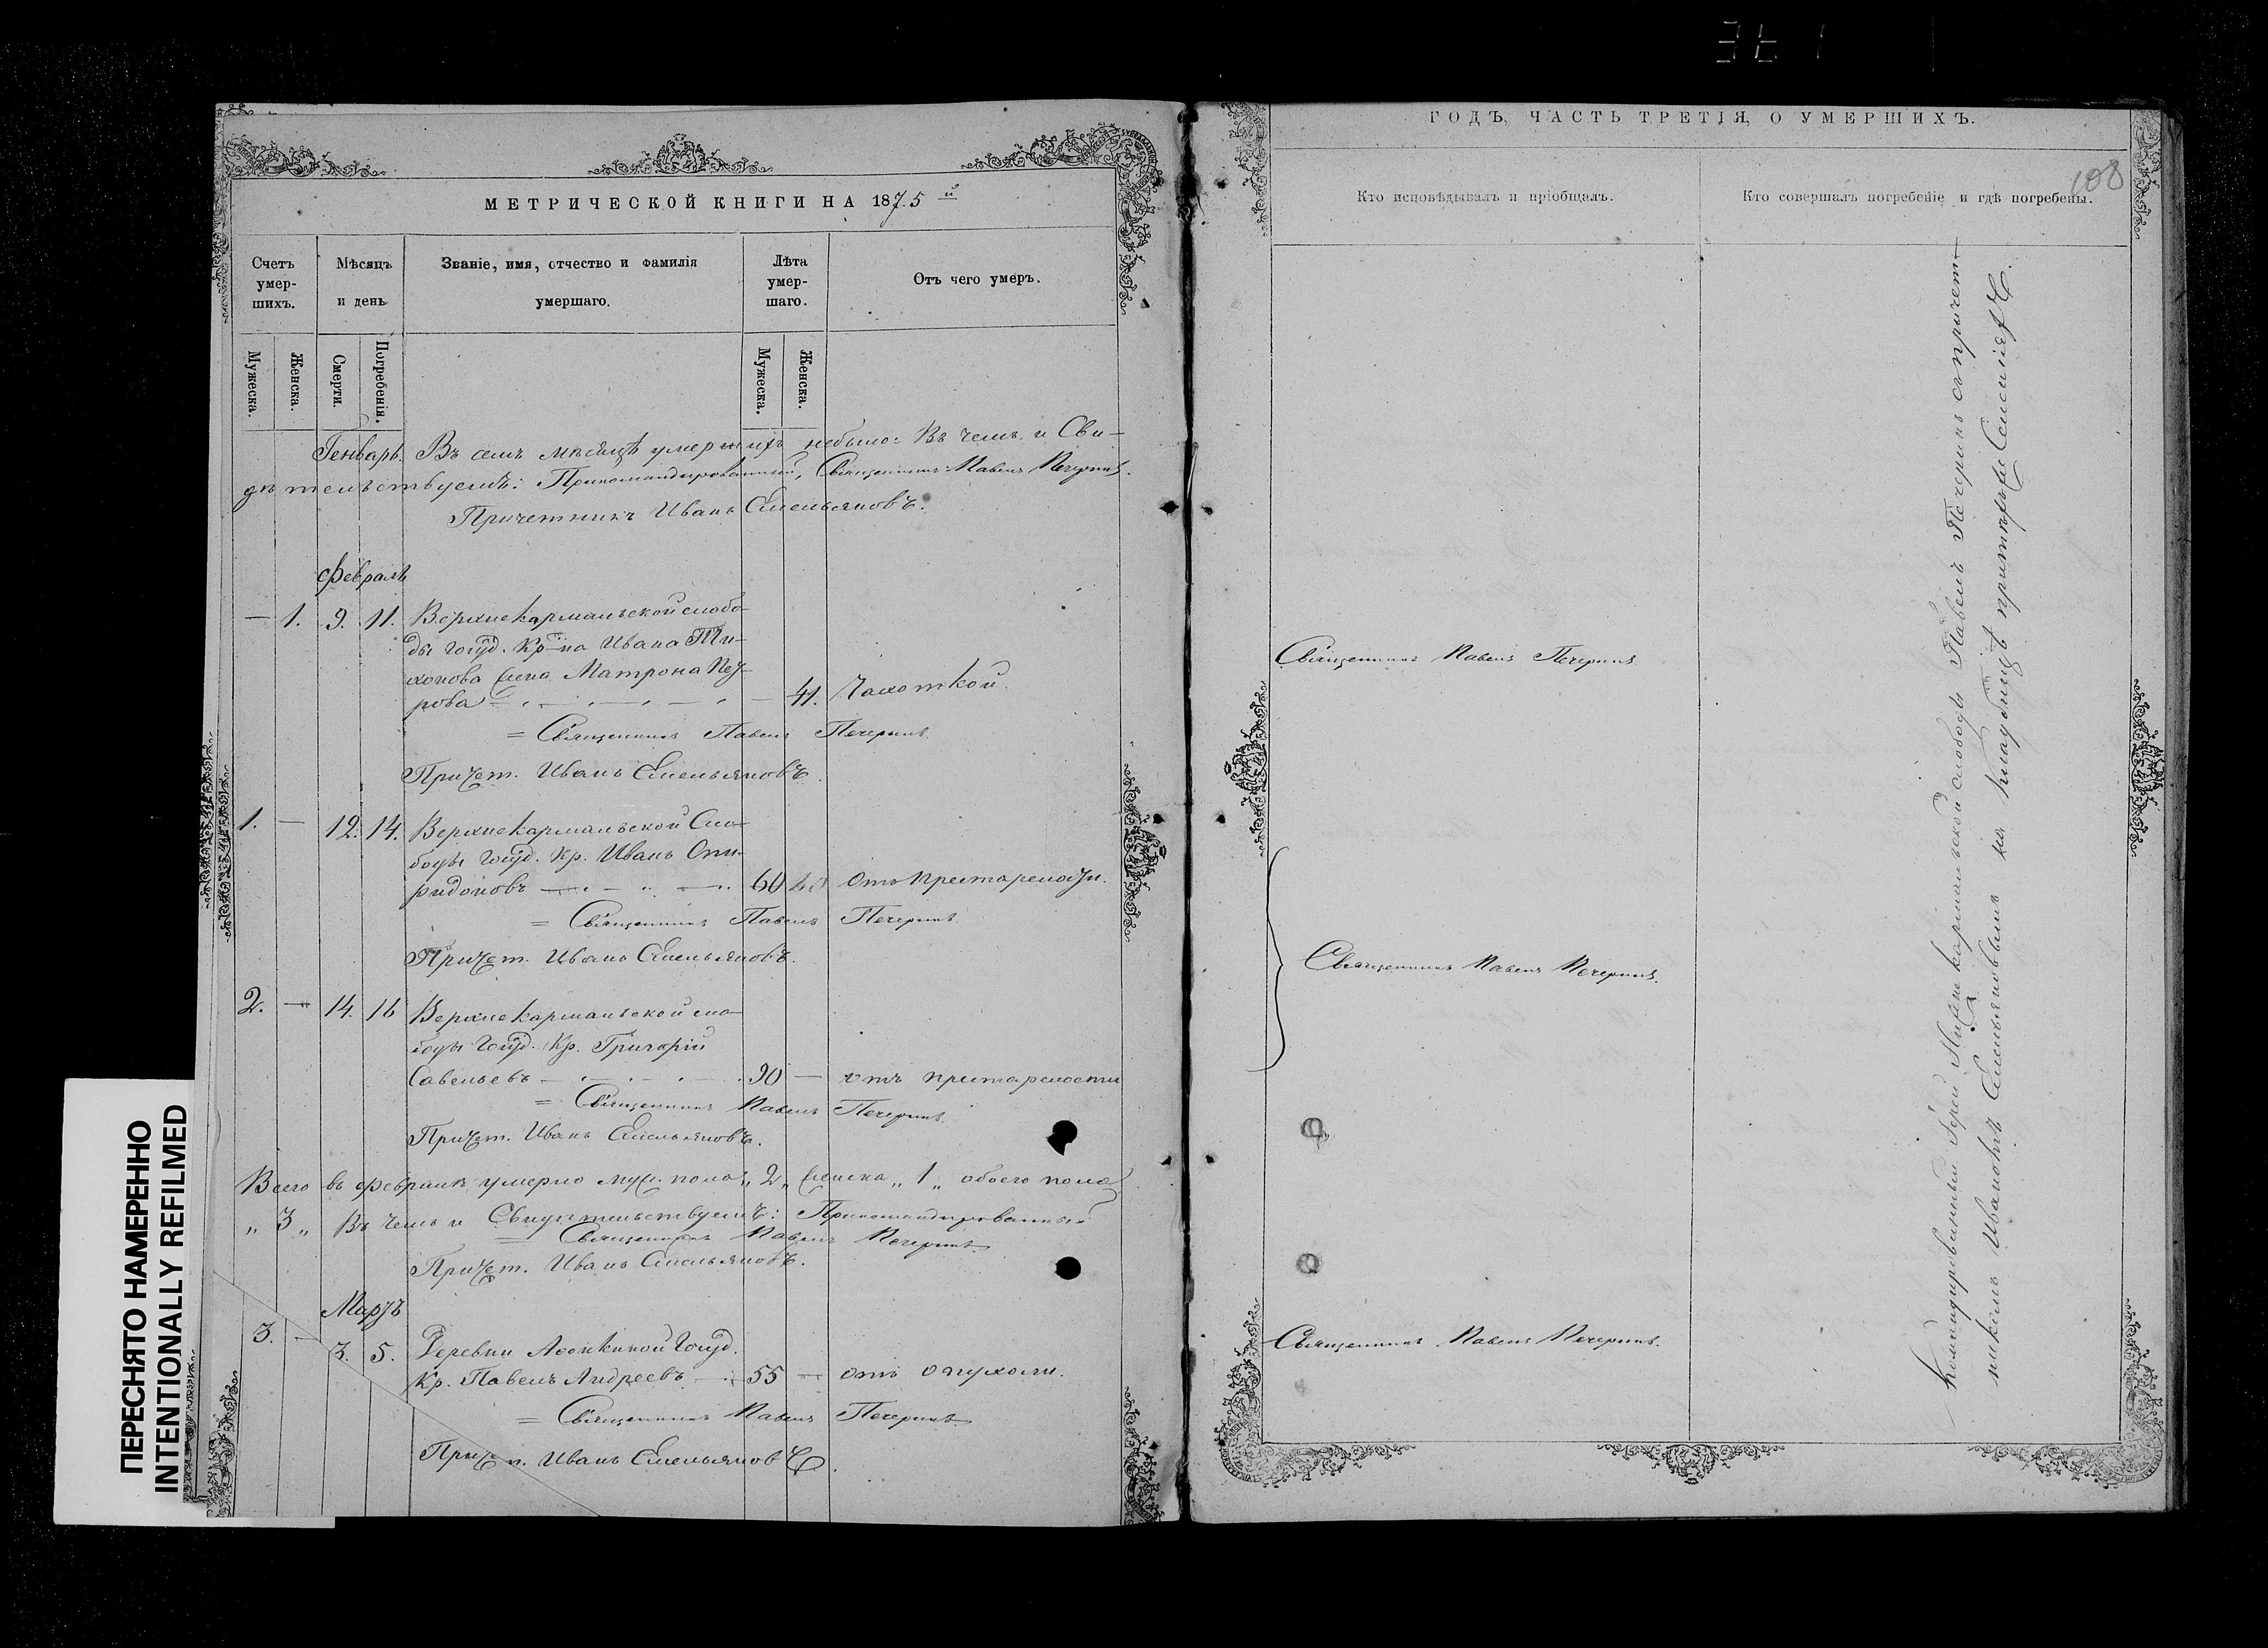 МЕТРИЧЕСКОЙ КНИГИ НА 1875й
Счетъ умер-шихъ.
Мѣсяцъ и день
Званіе, имя, отчество и фамилія умершаго.
Лѣта умер-шаго.
Отъ чего умеръ.
Мужеска.
Женска.
Смерти.
Погребенія.
Мужеска.
Женска.
Генварь. Въ семъ мѣсяцѣ умершихъ небыло: Въ чемъ и Сви-
дѣтельствуемъ: Прикомандированный, Священникъ Павелъ Печеринъ.
Причетникъ Иванъ Емельяновъ.
Февраль
— 1. 9. 11. Верхнекармальской слобо-
ды Госуд. Кр-на Ивана Ти-
хонова жена Матрона Пет-
рова — 41. Чахоткой.
= Священникъ Павелъ Печеринъ.
Причет. Иванъ Емельяновъ.
1. — 12. 14. Верхнекармальской Сло-
боды Госуд. Кр. Иванъ Спи-
ридоновъ 60 отъ престарелости.
= Священникъ Павелъ Печеринъ.
Причет. Иванъ Емельяновъ.
2. — 14. 16 Верхнекармальской сло-
боды Госуд. Кр. Григорій
Савельевъ 90 — отъ престарелости
= Священникъ Павелъ Печеринъ.
Причет. Иванъ Емельяновъ.
Всего въ Февралѣ умерло муж. пола „2„ женска „1„ обоего пола
„3„ Въ чемъ и Свидѣтельствуемъ: Прикомандированный
= Священникъ Павелъ Печеринъ.
Причет. Иванъ Емельяновъ.
Мартъ
3. — 3. 5. Деревни Госуд.
Кр. Павелъ Андреевъ 55 — отъ опухоли.
= Священникъ Павелъ Печеринъ
Причет. Иванъ Емельяновъ.
ПЕРЕСНЯТО НАМЕРЕННО
INTENTIONALLY REFILMED
ГОДЪ, ЧАСТЬ ТРЕТІЯ, О УМЕРШИХЪ.
108
Кто исповѣдывалъ и пріобщалъ.
Кто совершалъ погребеніе и гдѣ погребены.
Священникъ Павелъ Печеринъ.
Священникъ Павелъ Печеринъ.
Священникъ Павелъ Печеринъ.
Командированный Іерей Нижнекармальской слободы Павелъ Печеринъ съ причет-
никомъ Иваномъ Емельяновымъ на кладбищѣ